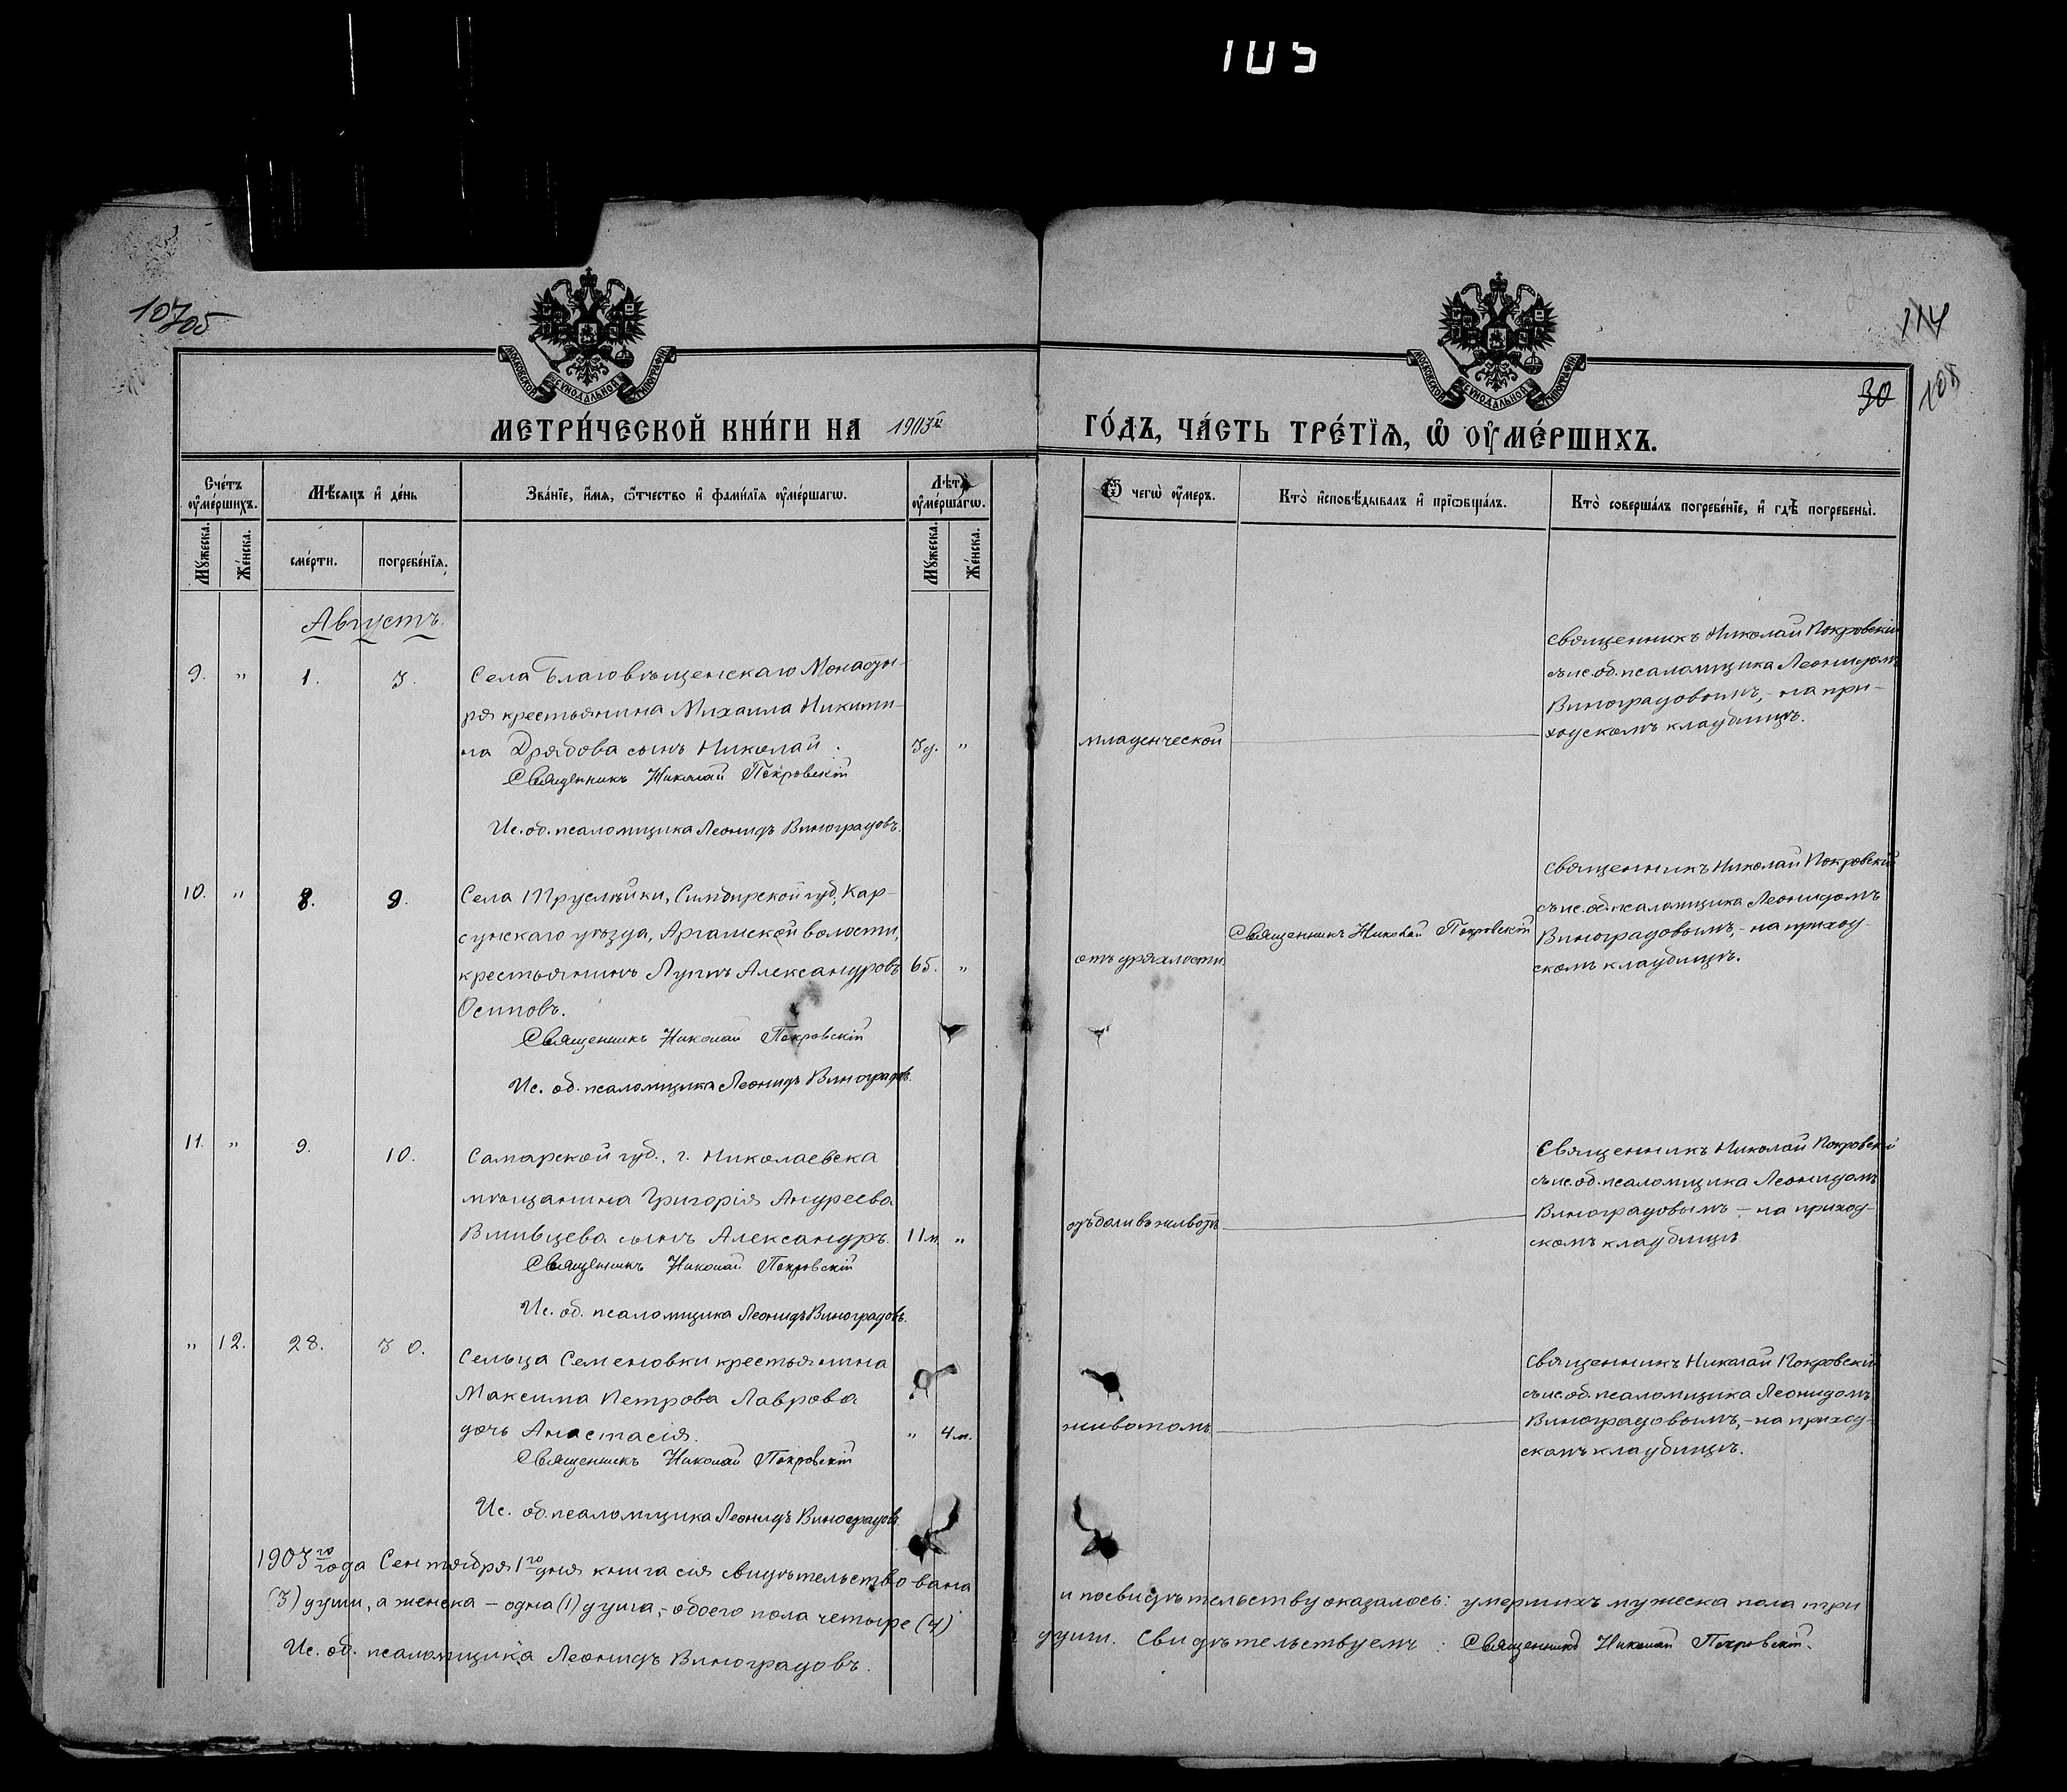 105
107
105
114
108
30
МОСКОВСКОЙ СѴНОДАЛЬНОЙ ТИПОГРАФІИ
МОСКОВСКОЙ СѴНОДАЛЬНОЙ ТИПОГРАФІИ
МЕТРИ́ЧЕСКОЙ КНИ́ГИ НА 1903й ГО́ДЪ, ЧА́СТЬ ТРЕ́ТЇѦ, Ѡ҆ ОУ҆МЕ́РШИХЪ.
Сче́тъ оу҆ме́ршихъ.
Мѣ́сяцъ и҆ де́нь
Зва́нїе, и҆́мя, ѻ҆́тчество и҆ фами́лїя оу҆ме́ршагѡ.
Лѣ́та оу҆ме́ршагѡ.
Ѿ чегѡ̀ оу҆́меръ.
Кто̀ и҆сповѣ́дывалъ и҆ прїѡбща́лъ.
Кто̀ соверша́лъ погребе́нїе, и҆ гдѣ̀ погребены̀.
Мꙋ́жеска.
Же́нска.
сме́рти.
погребе́нїя.
Мꙋ́жеска.
Же́нска.
Августъ.
9. " 1. 3. Села Благовѣщенскаго Монасты-
ря крестьянина Михаила Никити-
на Дрябова сынъ Николай. 3 г. "
Священникъ Николай Покровскій
Ис. об. псаломщика Леонидъ Виноградовъ.
младенческой
Священникъ Николай Покровскій
съ ис. об. псаломщика Леонидомъ
Виноградовымъ, - на при-
ходскомъ кладбищѣ.
10. " 8. 9. Села Труслейки, Симбирской губ., Кар-
сунскаго уѣзда, Аргашской волости,
крестьянинъ Лупъ Александровъ 65. "
Осиповъ.
Священникъ Николай Покровскій
Ис. об. псаломщика Леонидъ Виноградовъ.
отъ дряхлости.
Священникъ Николай Покровскій
Священникъ Николай Покровскій
съ ис. об. псаломщика Леонидомъ
Виноградовымъ, - на приход-
скомъ кладбищѣ.
11. " 9. 10. Самарской губ., г. Николаевска
мѣщанина Григорія Андреева
сынъ Александръ. 11 м. "
Священникъ Николай Покровскій
Ис. об. псаломщика Леонидъ Виноградовъ.
отъ боли въ животѣ
Священникъ Николай Покровскій
съ ис. об. псаломщика Леонидомъ
Виноградовымъ - на приход-
скомъ кладбищѣ
" 12. 28. 30. Сельца Семеновки крестьянина
Максима Петрова Лаврова
дочь Анастасія. " 4 м.
Священникъ Николай Покровскій
Ис. об. псаломщика Леонидъ Виноградовъ.
животомъ
Священникъ Николай Покровскій
съ ис. об. псаломщика Леонидомъ
Виноградовымъ, - на приход-
скомъ кладбищѣ.
1903го года Сентября 1го дня книга сія свидѣтельствована и по свидѣтельству оказалось: умершихъ мужеска пола три
(3) души, а женска - одна (1) душа, - обоего пола четыре (4) души. Свидѣтельствуемъ: Священникъ Николай Покровскій.
Ис. об. псаломщика Леонидъ Виноградовъ.